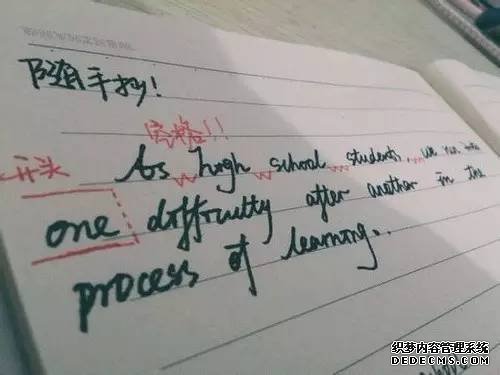 随手抄!
空格!!
开头
As high school students, we run into
one difficulty after another in the
process of learning.
织梦内容管理系统
DEDECMS.COM